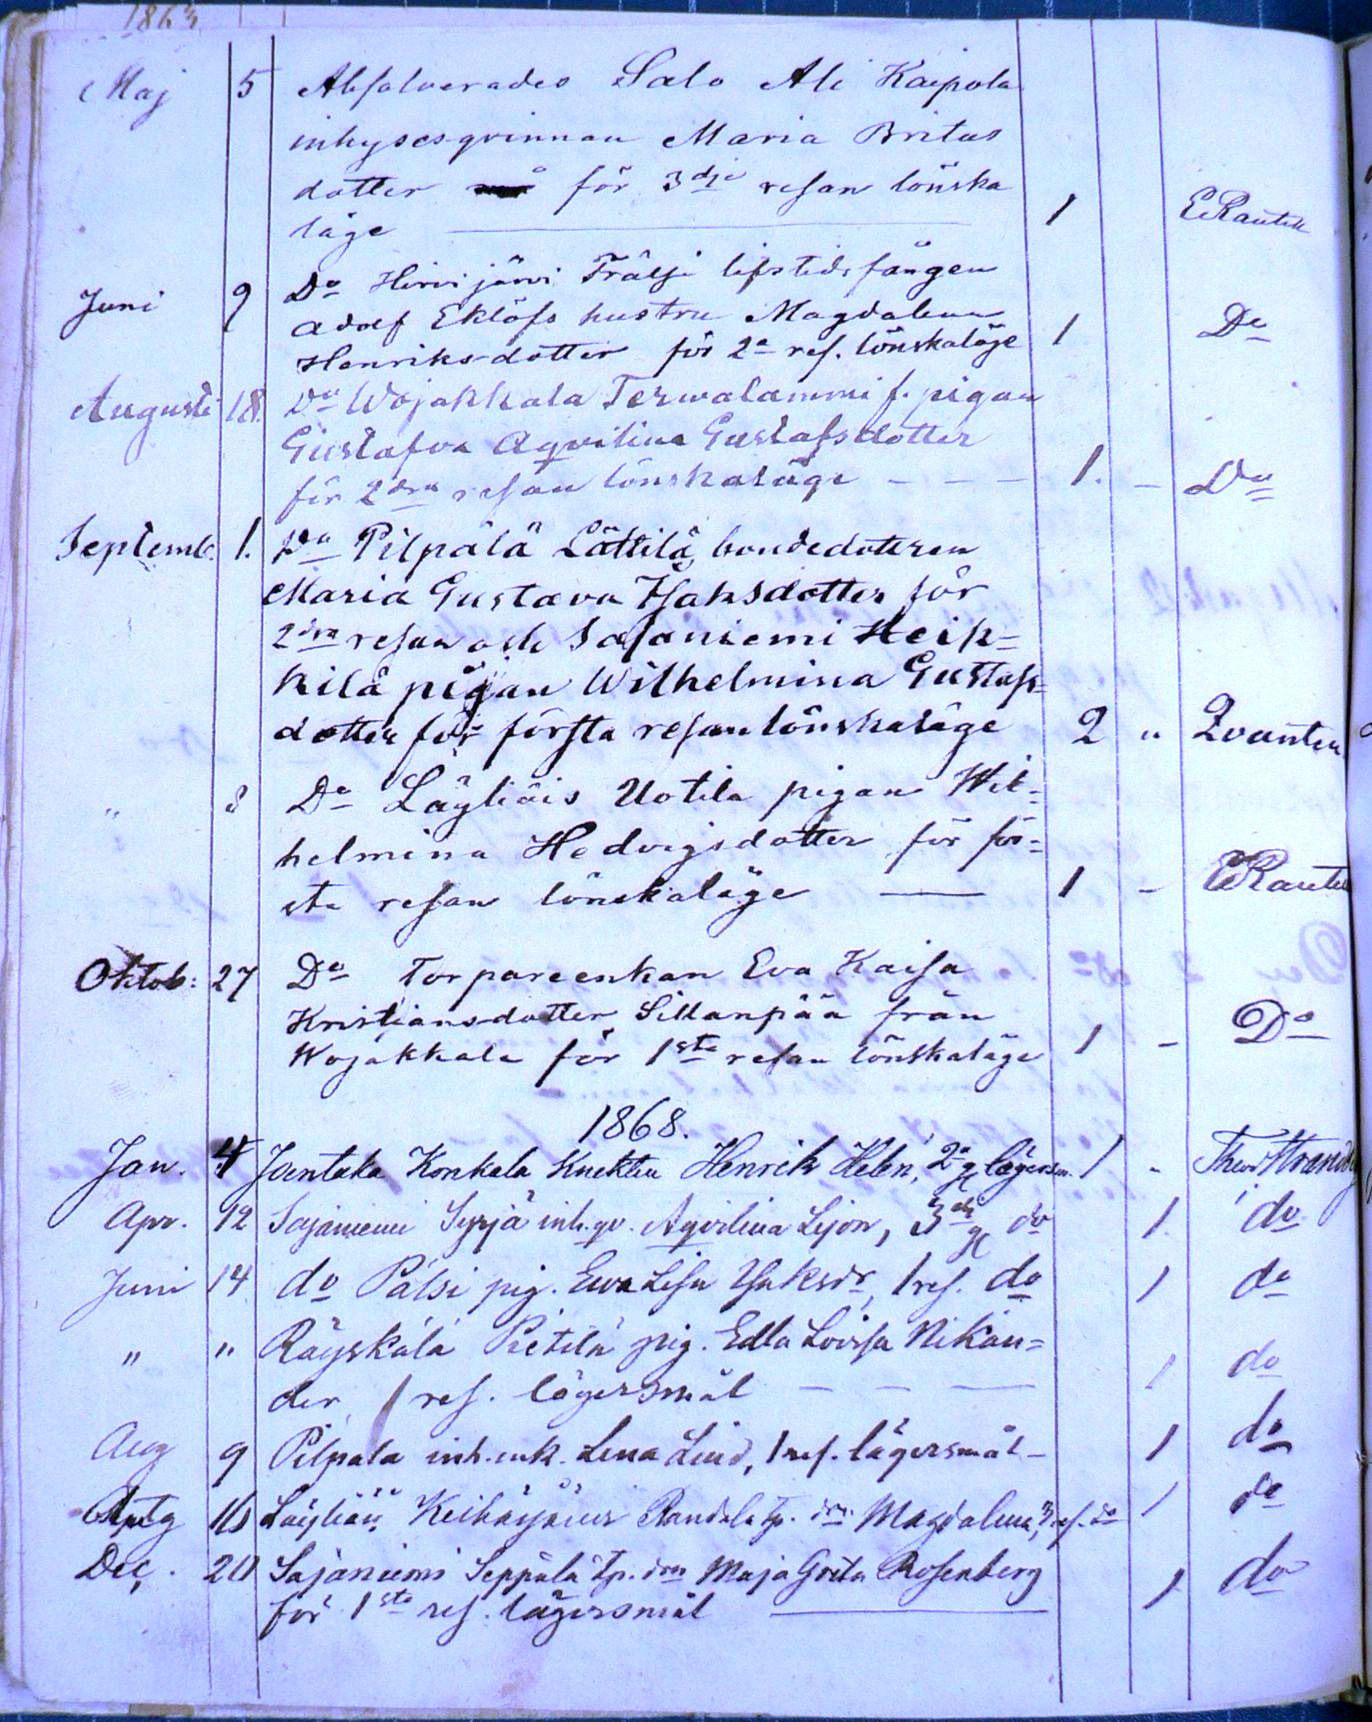 1867
Maj 5 Absolverades Salo Ali Kaipola
inhysesqvinnan Maria Britas
dotter för 3dje resan lönska
läge 1 ERautell
Juni 9 Do Hirvijärvi Trälji lifstidsfången
Adolf Eklöfs hustru Magdalena
Henriksdotter för 2a res. lönskaläge 1 Do
Augusti 18. Do Wojakkala Terwalammi f. pigan
Gustafva Aqvilina Gustafsdotter
för 2dra resan lönskaläge - - - 1. - Do
Septemb. 1. Do Pilpala Lättilä bondedottren
Maria Gustava Isaksdotter för
2dra resan och Sajaniemi Heik=
kilä pigan Wilhelmina Gustafs=
dotter för första resan lönskaläge 2 " Qvantén
" 8 Do Läyliäis Uotila pigan Wil=
helmina Hedvigsdotter förför=
sta resan lönskaläge 1 - ERautell
Oktob: 27 Do Torpareenkan Eva Kaisa
Kristiansdotter Sillanpää från
Wojakkala för 1sta resan lönskaläge 1 - Do
1868.
Jan. 4 Joentaka Konkala Knekten Henrik Helen, 2a g lägersm. 1 - Theod Strandb
Apr. 12 Sajaniemi Syrjä inh.qv. Aqvilina Lejon, 3dje g do 1. do
Juni 14 do Pälsi pig. Ewa Lisa Isaksdr, 1 res. do 1 do
" " Räyskälä Pietilä pig. Edla Lovisa Nikan=
der, 1 res. lägersmål - - - 1 do
Aug 9 Pilpala inh.enk. Lena Lind, 1 res. lägersmål - 1 do
16 Läyliäis, Keihäsjärvi Randala tp. dr. Magdalena, 3 res. do 1 do
Dec. 20 Sajaniemi Seppälä tp. drn Maja Greta Rosenberg
för 1sta res. lägersmål 1 do